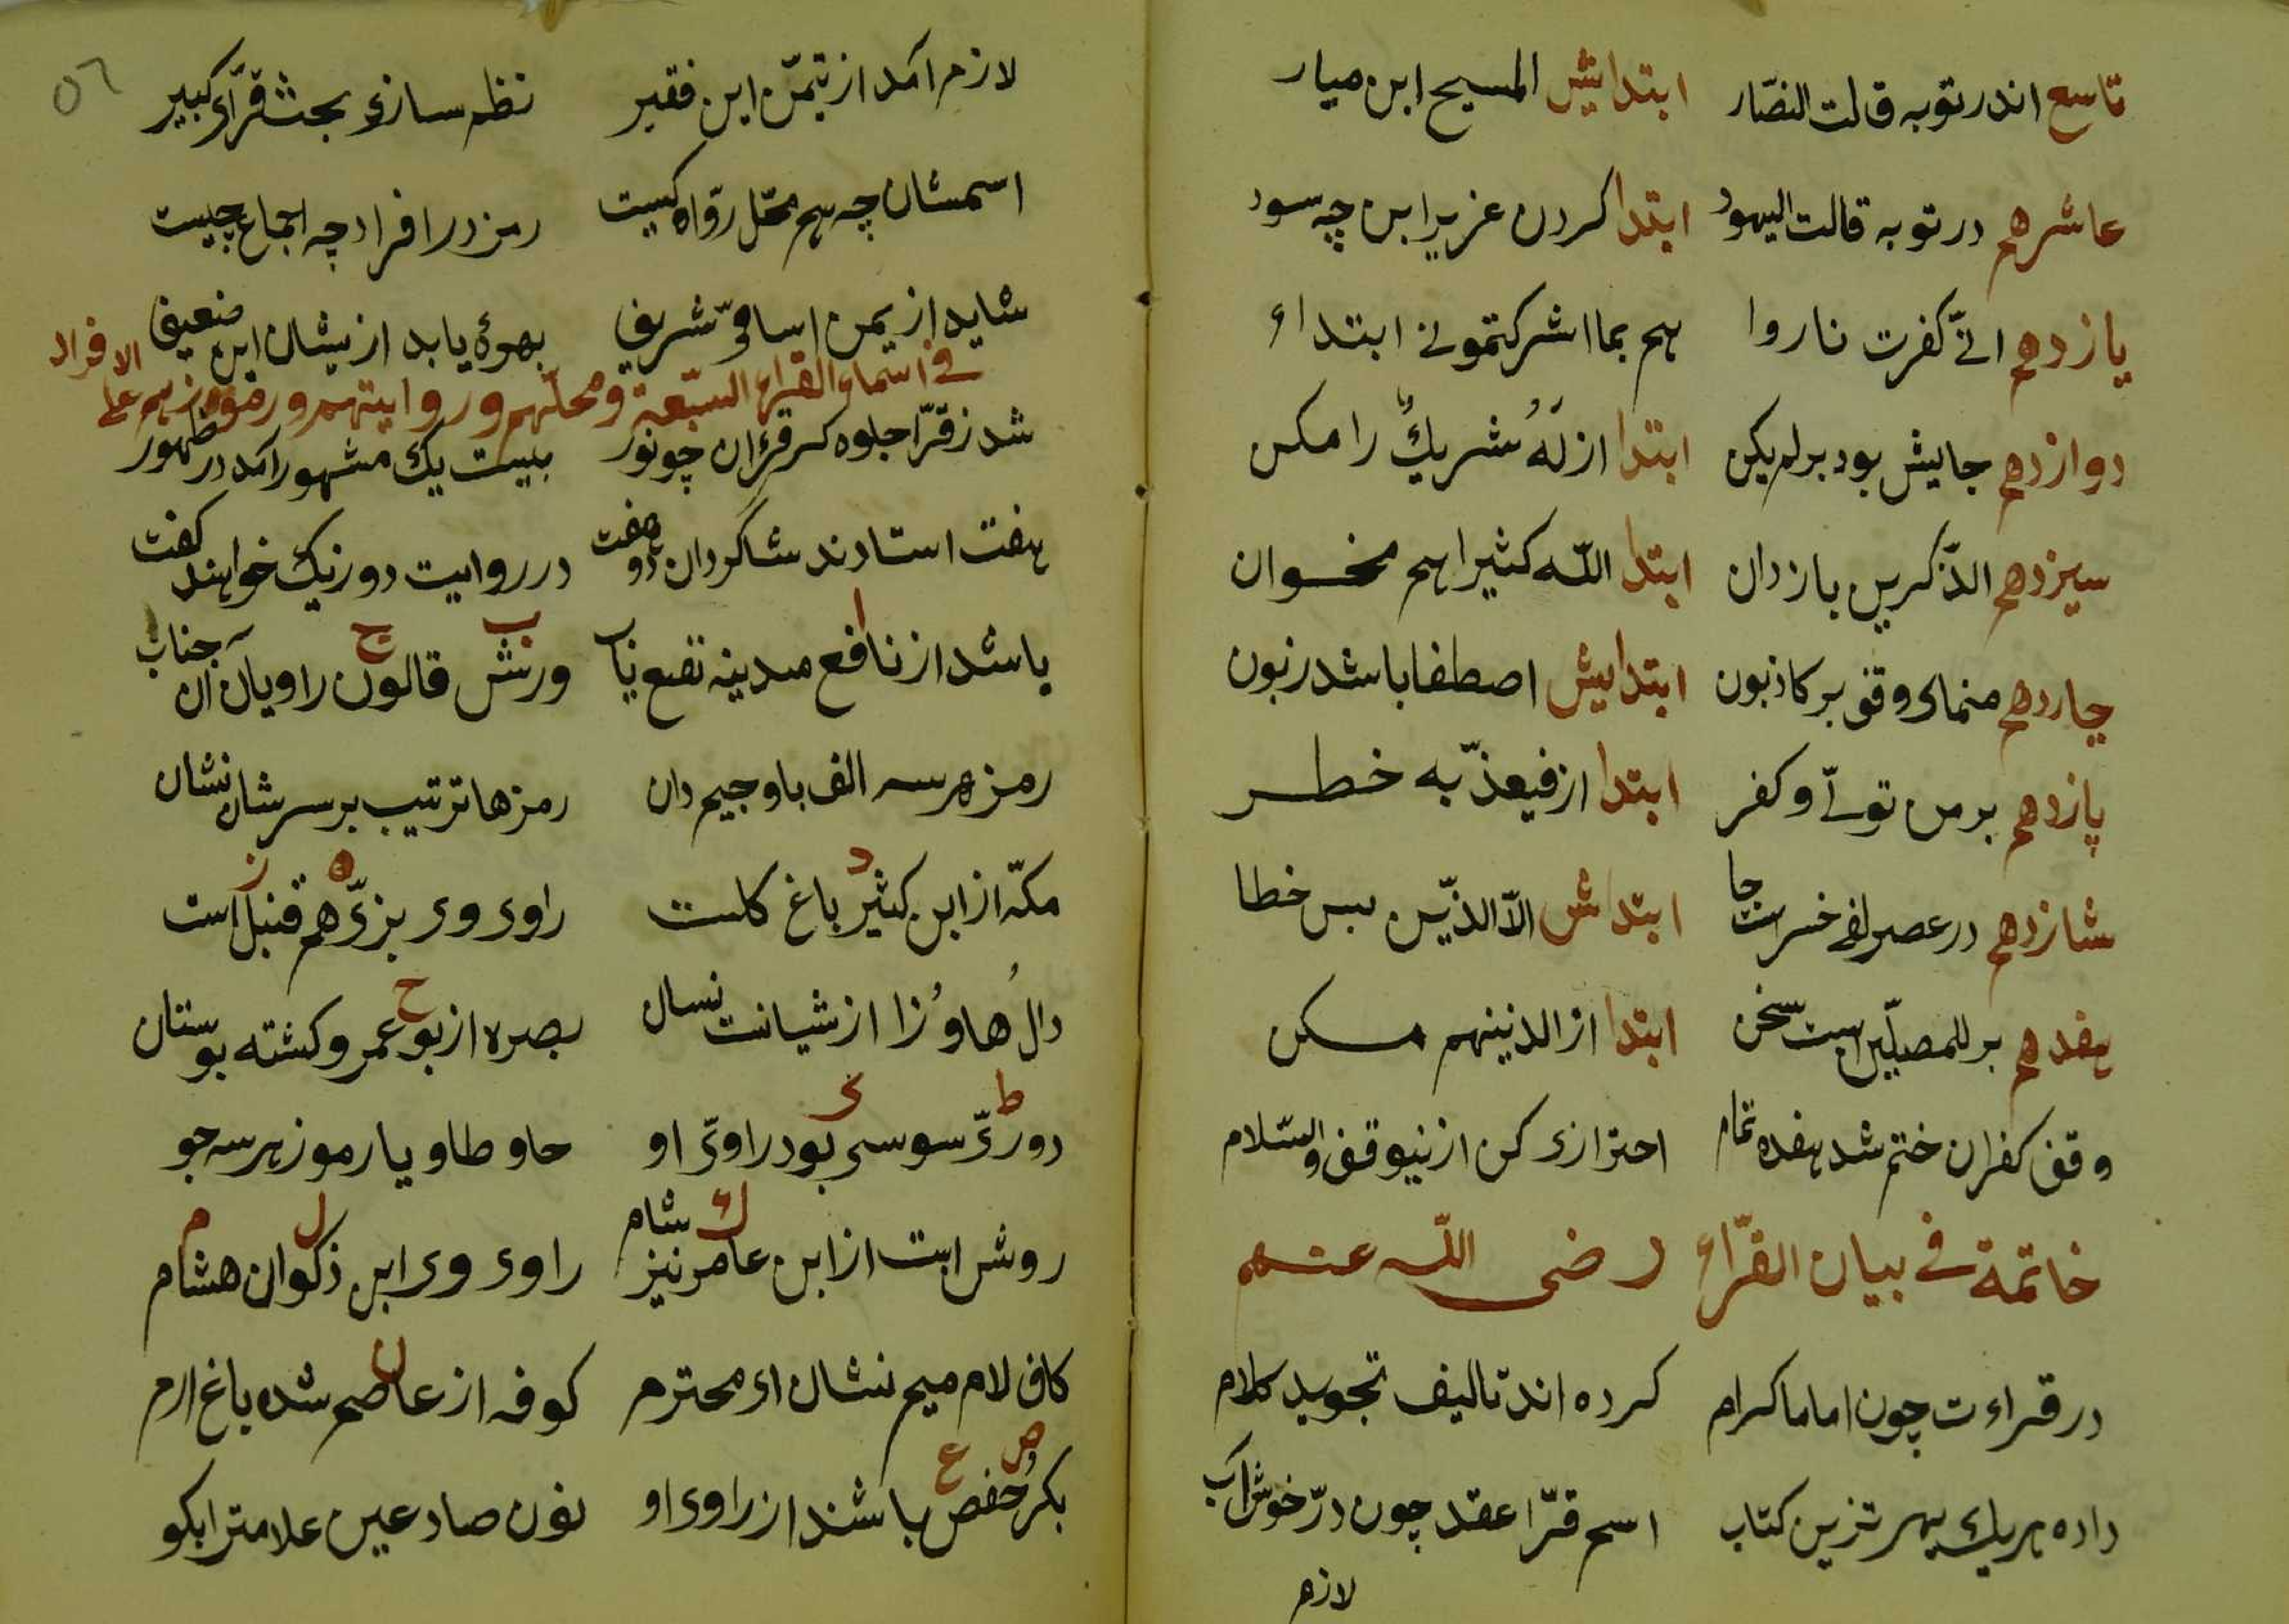 تاسع اندر توبه قالت النصّار ابتدایش المسیح ابن میار
عاشرهم در توبه قالت الیهود ابتدا کردن عزیر ابن چه سود
یازدهم انّی کفرت ناروا هم بما اشرکتمونی ابتداء
دوازدهم جایش بود بر لم یکن ابتدا از لَهُ شریكٌ را مکن
سیزدهم الذّکرین باز دان ابتدا اللّه کثیرا هم مخوان
چاردهم منمای وقف بر کاذبون ابتدایش اصطفا باشد زبون
پازدهم بر من تولّی و کفر ابتدا از فیعذّبه خطر
شازدهم در عصر لفی خسر است جا ابتداش الّا الذّین بس خطا
هفدهم بر للمصلّین است سخن ابتدا از الذینهم مسکن
وقف کفران ختم شد هفده تمام احترازی کن ازینوقف والسّلام
خاتمة فی بیان القرّاء رضی اللّه عنهم
در قراءت چون اماما کرام کرده اند تالیف تجوید کلام
داده هریك بهر تزیین کتاب اسم قرّا عقد چون درّ خوش آب
لازم
٥٦
لازم آمد از تیمّن این فقیر نظم سازی بحث قرّآی کبیر
اسمشان چه هم محّل روّاه کیست رمز در افراد چه اجماع چیست
شاید از یمن اسامیّ شریف بهرهٔ یابد ازیشان این ضعیف
فی اسماء القراء السّبعة و محلّهم و روایتهم و رموزهم علی الافراد
شد ز قرّا جلوه گر قرءان چو نور بیست یك مشهور آمد در ظهور
هفت استادند شاگردان دو هفت در روایت دو زیك خواهند گفت
ا ب ج
باشد از نافع مدینه نفع یاب ورش قالون راویان آن جناب
رمز هر سه الف با و جیم دان رمزها ترتیب بر سرشان نشان
د ه ز
مکّه از ابن کثیر باغ گلست راوی وی بزّی هم قنبل است
ح
دالُ ها وُ زا ازشیانت نسال بصره از بو عمرو گشته بوستان
ط ی
دوریّ سوسی بود راویّ او حا و طا و یا رموز هر سه جو
ك ل م
روشن است از ابن عامر نیز شام راوی وی ابن ذکوان هشام
ن
کاف لام میم نشان ای محترم کوفه از عاصم شده باغ ارم
ص ع
بکرُ حفص باشند از راوی او نون صاد عین علامترا بکو